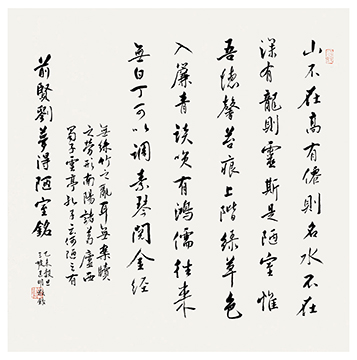 山不在高有僊則名水不在
深有龍則靈斯是陋室惟
吾德馨苔痕上階綠草色
入簾青談笑有鴻儒往來
無白丁可以調素琴閱金經
無絲竹之亂耳無案牘
之勞形南陽諸葛廬西
蜀子雲亭孔子云何陋之有
前賢劉夢得陋室銘
乙未